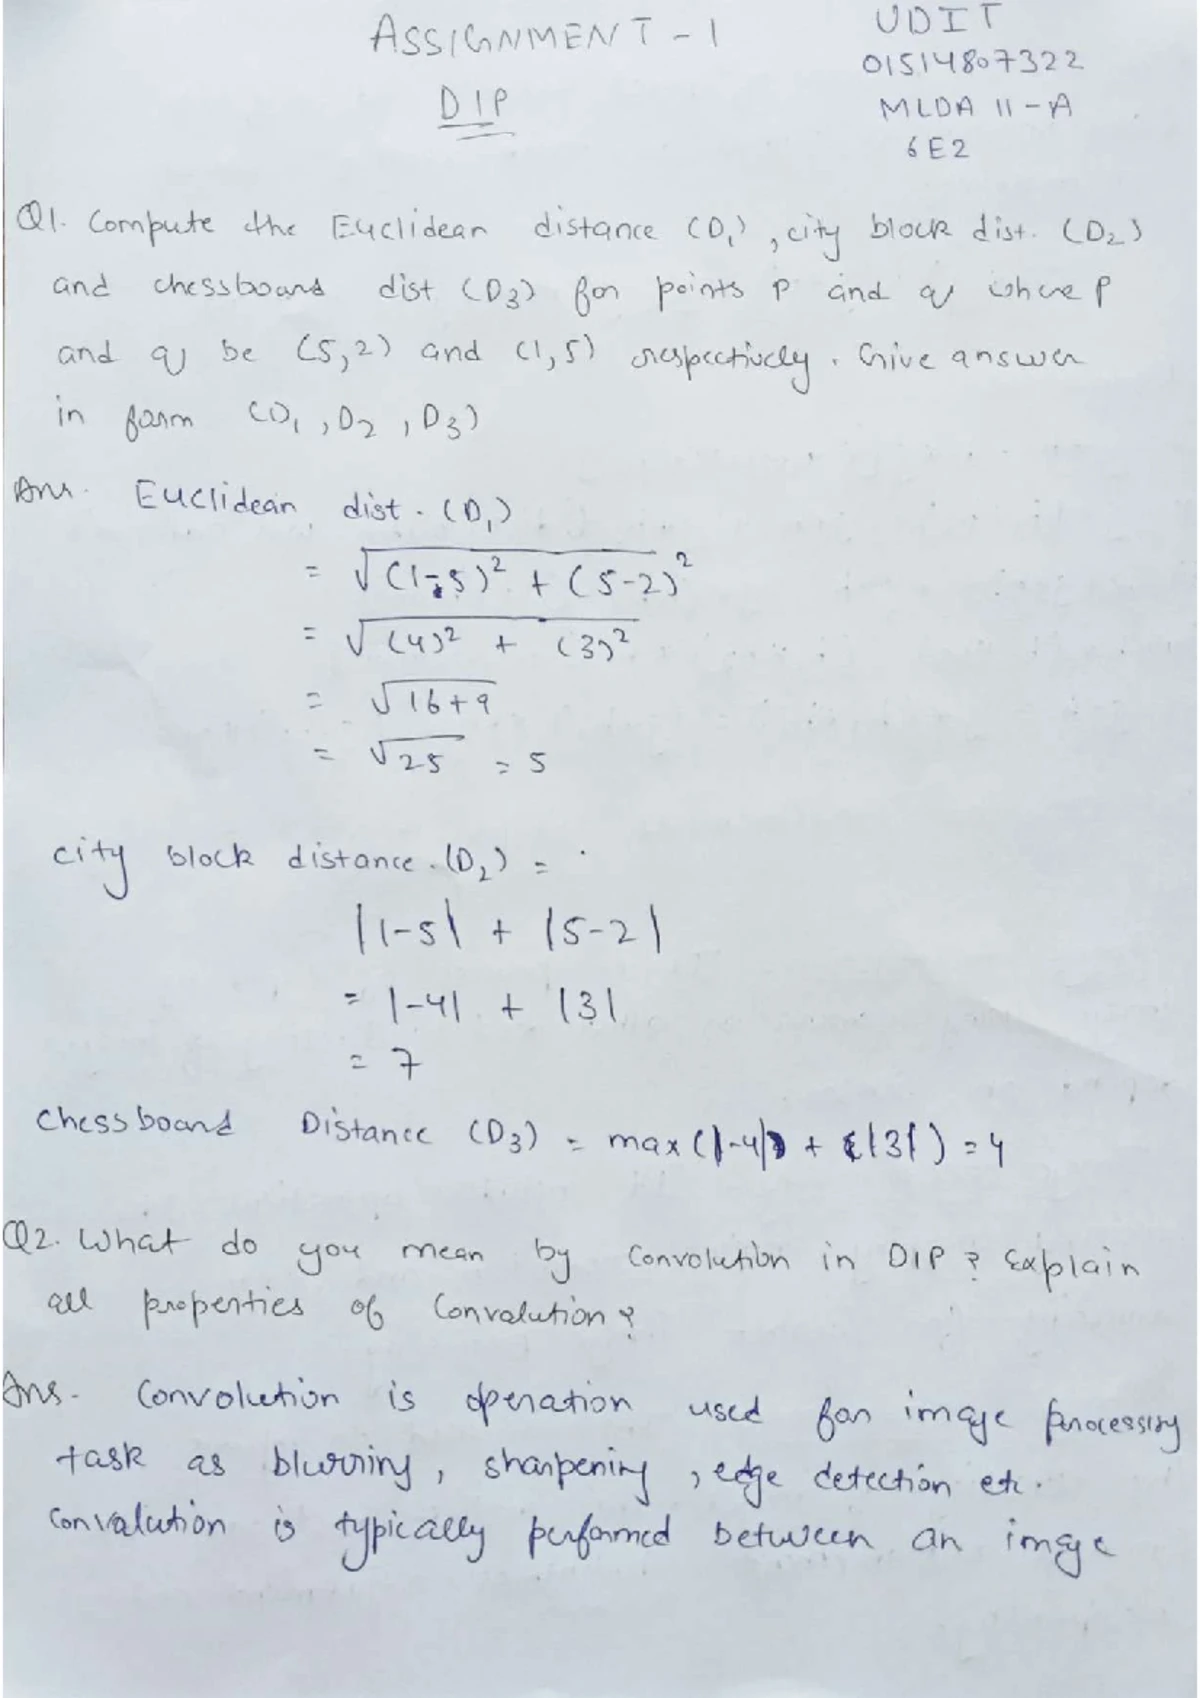 ASSIGNMENT - 1
DIP
UDIT
01514807322
MLDA II - A
6E2
Q1. Compute the Euclidean distance (D₁), city block dist. (D₂)
and chessboard dist (D3) for points p and q where p
and q be (5,2) and (1,5) respectively. Give answer
in form (D₁, D₂, D₃)
Ans. Euclidean dist. (D₁)
= √(1-5)² + (5-2)²
= √(4)² + (3)²
= √16+9
= √25 = 5
city block distance. (D₂) =
|1-5| + |5-2|
= |-4| + |3|
= 7
Chessboard Distance (D₃) = max(|-4| + |3|) = 4
Q2. What do you mean by Convolution in DIP? Explain
all properties of Convolution?
Ans- Convolution is operation used for image processing
task as blurring, sharpening, edge detection etc.
Convolution is typically performed between an image